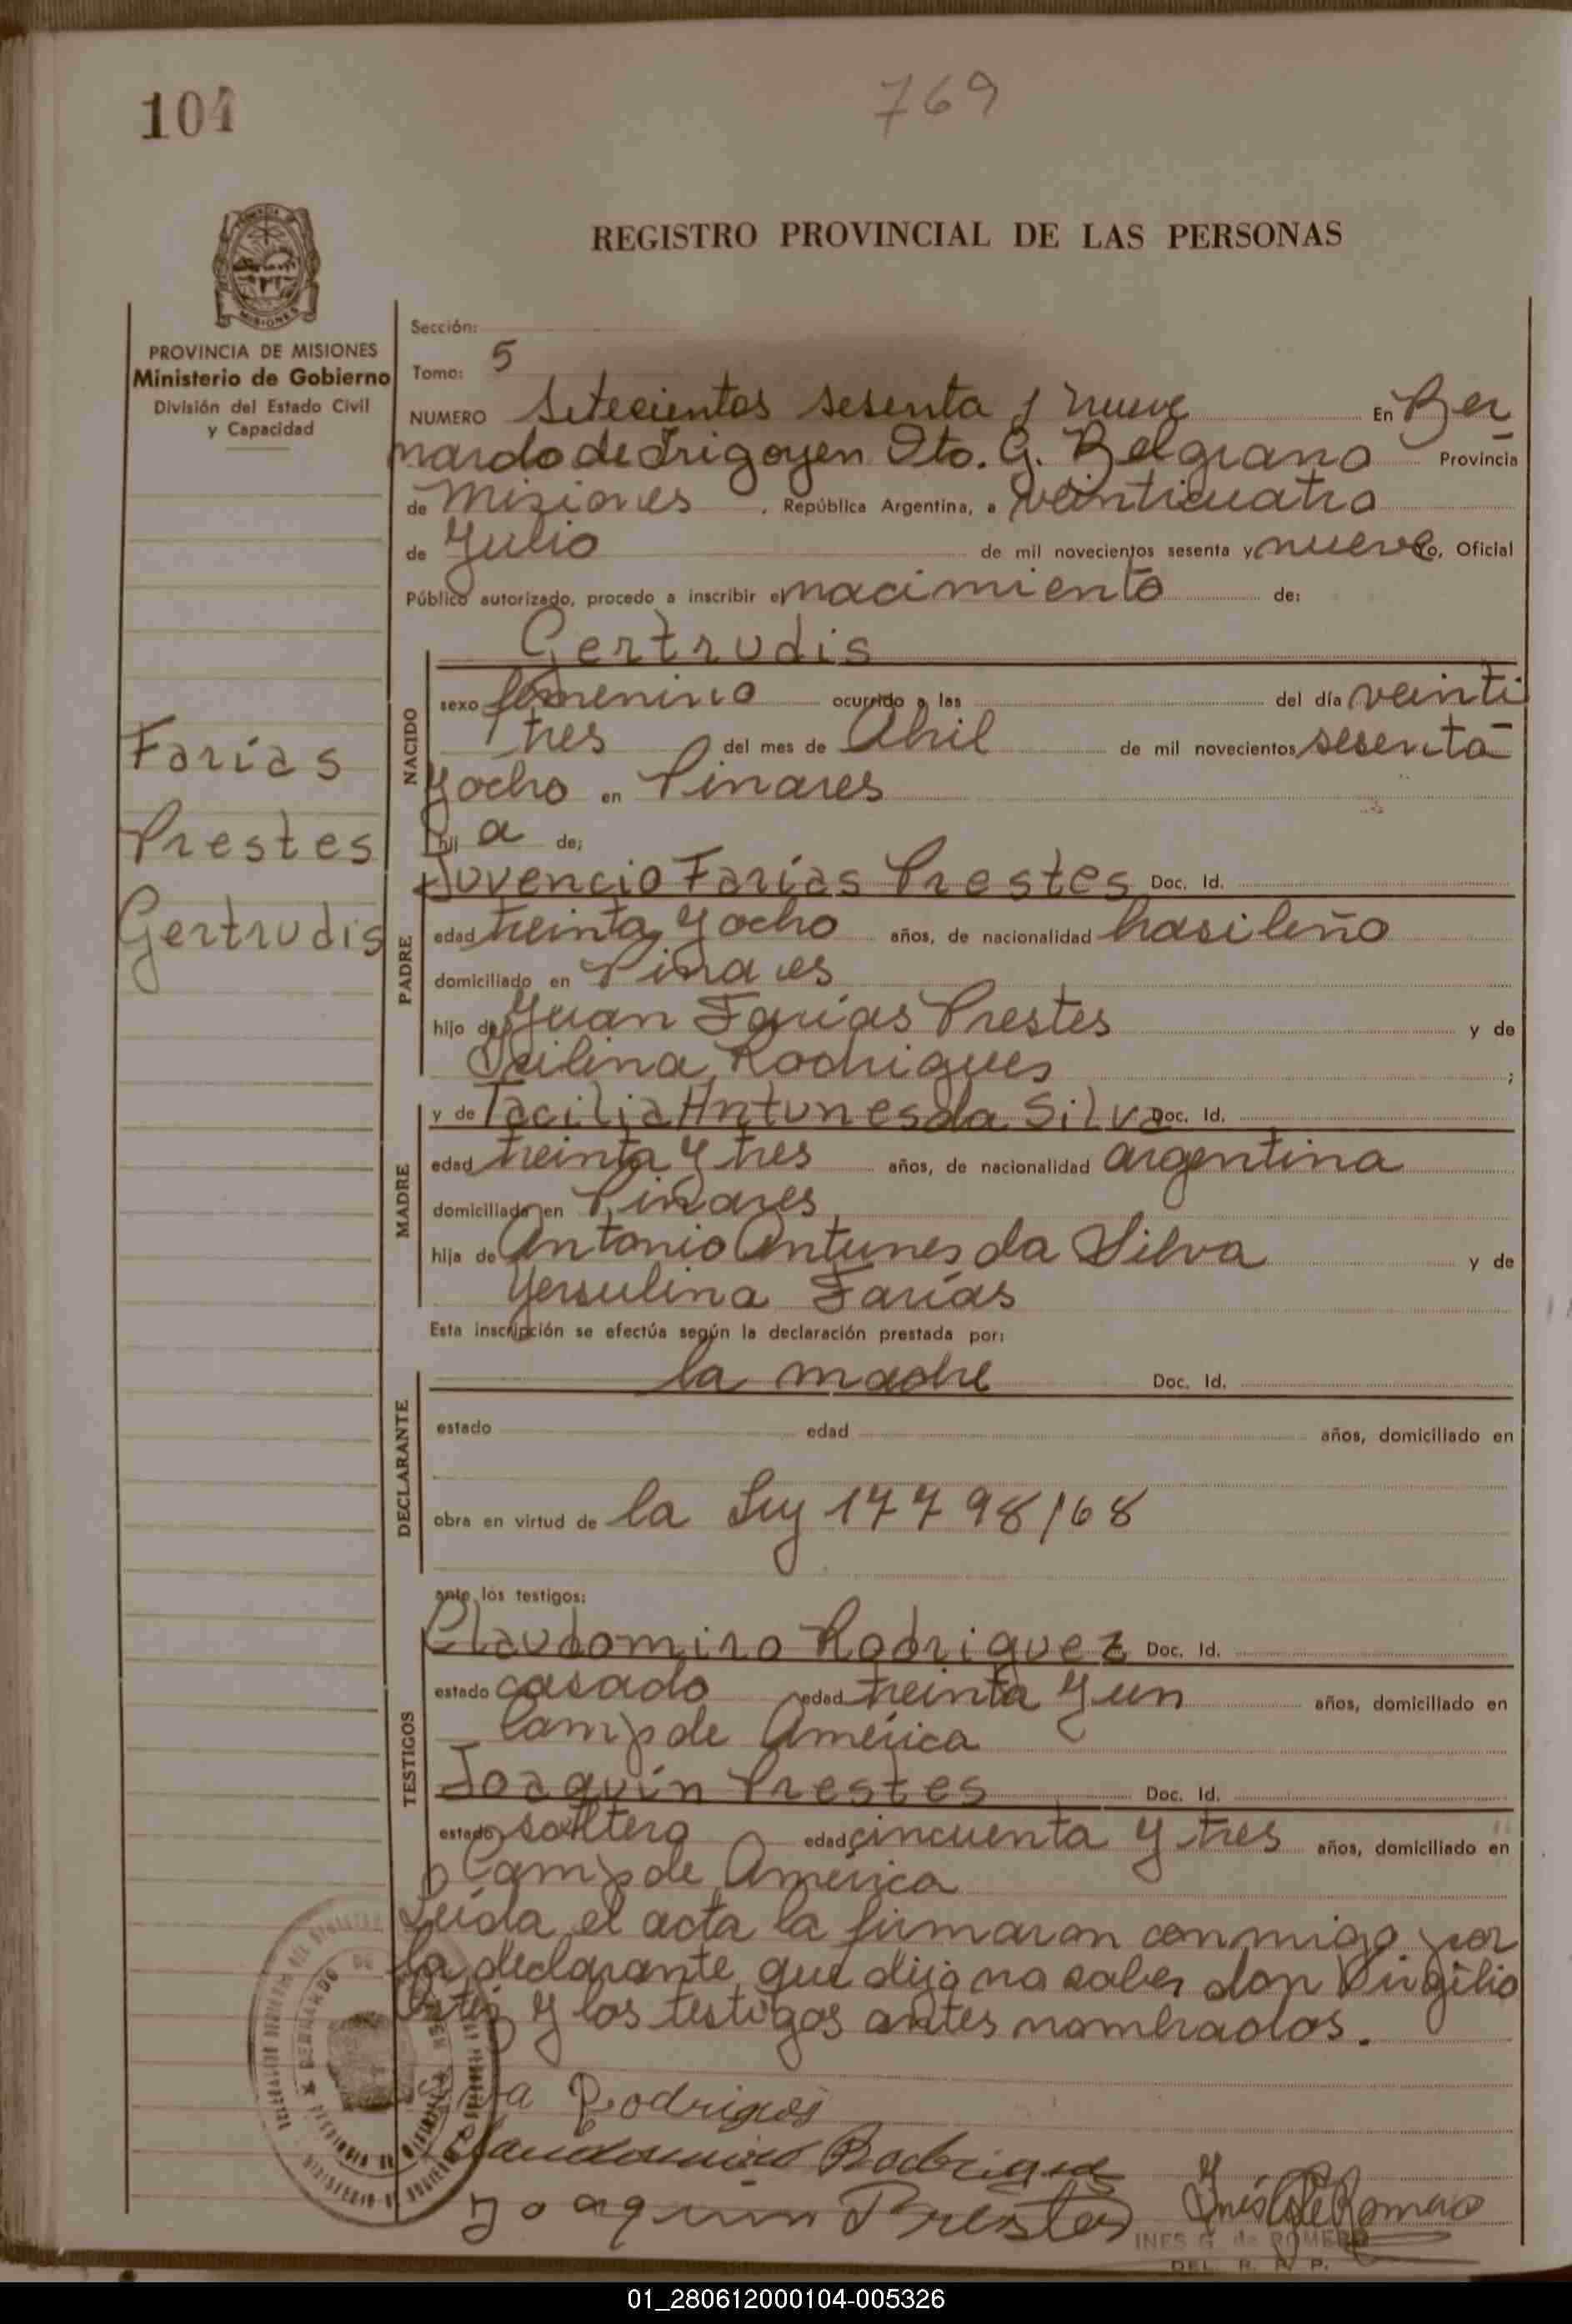 104
769
REGISTRO PROVINCIAL DE LAS PERSONAS
MISIONES
PROVINCIA DE MISIONES
Ministerio de Gobierno
División del Estado Civil
y Capacidad
Farías
Prestes
Gertrudis
Sección:
Tomo: 5
NUMERO Setecientos sesenta y nueve En Ber
nardo de Irigoyen Dto. G. Belgrano Provincia
de Misiones, República Argentina, a veinticuatro
de Julio de mil novecientos sesenta y nueve Yo, Oficial
Público autorizado, procedo a inscribir el nacimiento de:
NACIDO
Gertrudis
sexo femenino ocurrido a las del día veinti
tres del mes de Abril de mil novecientos sesenta
y ocho en Pinares
hij a de;
PADRE
Juvencio Farías Prestes Doc. Id.
edad treinta y ocho años, de nacionalidad brasileño
domiciliado en Pinares
hijo de Juan Farías Prestes y de
Rodrigues ;
MADRE
y de Tacilia Antunes da Silva Doc. Id.
edad treinta y tres años, de nacionalidad argentina
domiciliada en Pinares
hija de Antonio Antunes da Silva y de
Yersulina Farías
Esta inscripción se efectúa según la declaración prestada por:
DECLARANTE
la madre Doc. Id.
estado edad años, domiciliado en
obra en virtud de la Ley 17798/68
ante los testigos:
TESTIGOS
Claudomiro Rodriguez Doc. Id.
estado casado edad treinta y un años, domiciliado en
Comp de América
Joaquín Prestes Doc. Id.
estado soltero edad cincuenta y tres años, domiciliado en
Comp de América
Leída el acta la firmaron conmigo por
la declarante que dijo no saber don Virgilio
y los testigos antes nombrados.
Rodrigues
Claudomiro Rodriguez
Joaquin Prestes
Inés G de Romero
INES G. de ROMERO
DEL. R. P. P.
01_280612000104-005326